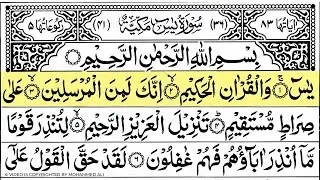 اٰيَاتُهَا ٨٣ (٣٦) سُوْرَةُ يٰسٓ مَكِّيَّةٌ (٤١) رُكُوْعَاتُهَا ٥
بِسْمِ اللّٰهِ الرَّحْمٰنِ الرَّحِيْمِ
يٰسٓ ۝١ وَالْقُرْاٰنِ الْحَكِيْمِ ۝٢ اِنَّكَ لَمِنَ الْمُرْسَلِيْنَ ۝٣ عَلٰى
صِرَاطٍ مُّسْتَقِيْمٍ ۝٤ تَنْزِيْلَ الْعَزِيْزِ الرَّحِيْمِ ۝٥ لِتُنْذِرَ قَوْمًا
مَّاۤ اُنْذِرَ اٰبَآؤُهُمْ فَهُمْ غٰفِلُوْنَ ۝٦ لَقَدْ حَقَّ الْقَوْلُ عَلٰٓى
© VIDEO IS COPYRIGHTED BY MOHAMMED ALI